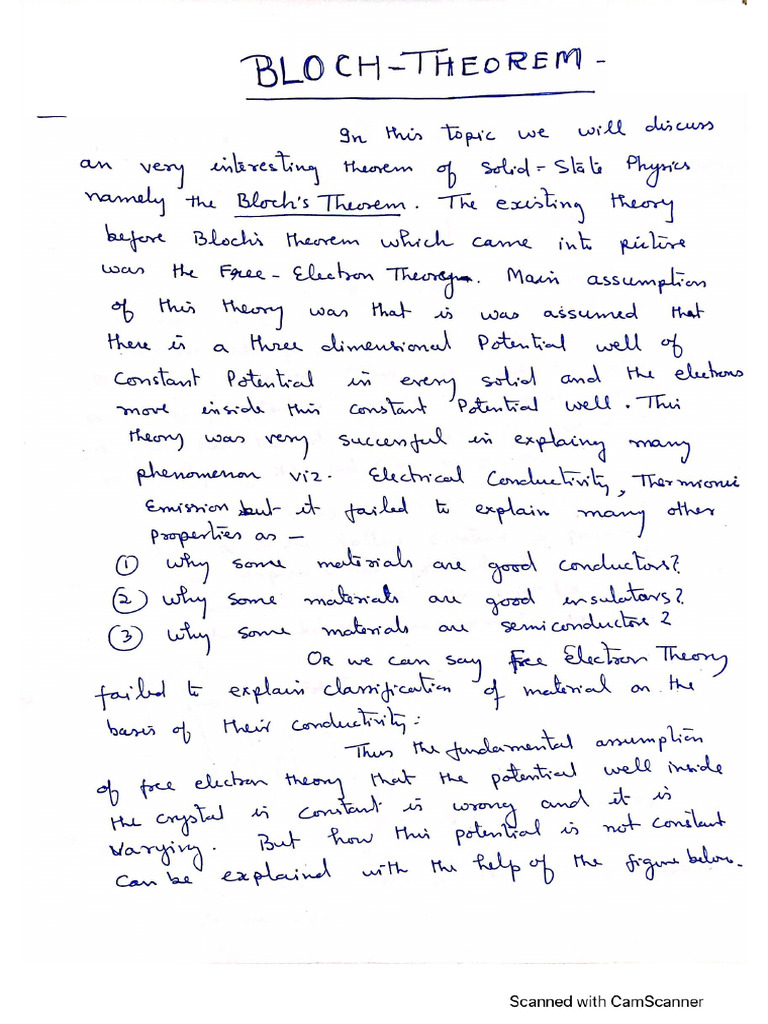 BLOCH-THEOREM-
In this topic we will discuss
an very interesting theorem of Solid-State Physics
namely the Bloch's Theorem. The existing theory
before Bloch's theorem which came into picture
was the Free-Electron Theory. Main assumption
of this theory was that is was assumed that
there is a three dimensional Potential well of
Constant Potential in every solid and the electrons
move inside this constant Potential well. This
theory was very successful in explaing many
phenomenon viz. Electrical Conductivity, Thermionic
Emission but it failed to explain many other
properties as -
① Why some materials are good conductors?
② Why some materials are good insulators?
③ Why some materials are semiconductors?
Or we can say Free Electron Theory
failed to explain classification of material on the
basis of their conductivity.
Thus the fundamental assumption
of free electron theory that the potential well inside
the crystal is constant is wrong and it is
Varying. But how this potential is not constant
Can be explained with the help of the figure below.
Scanned with CamScanner